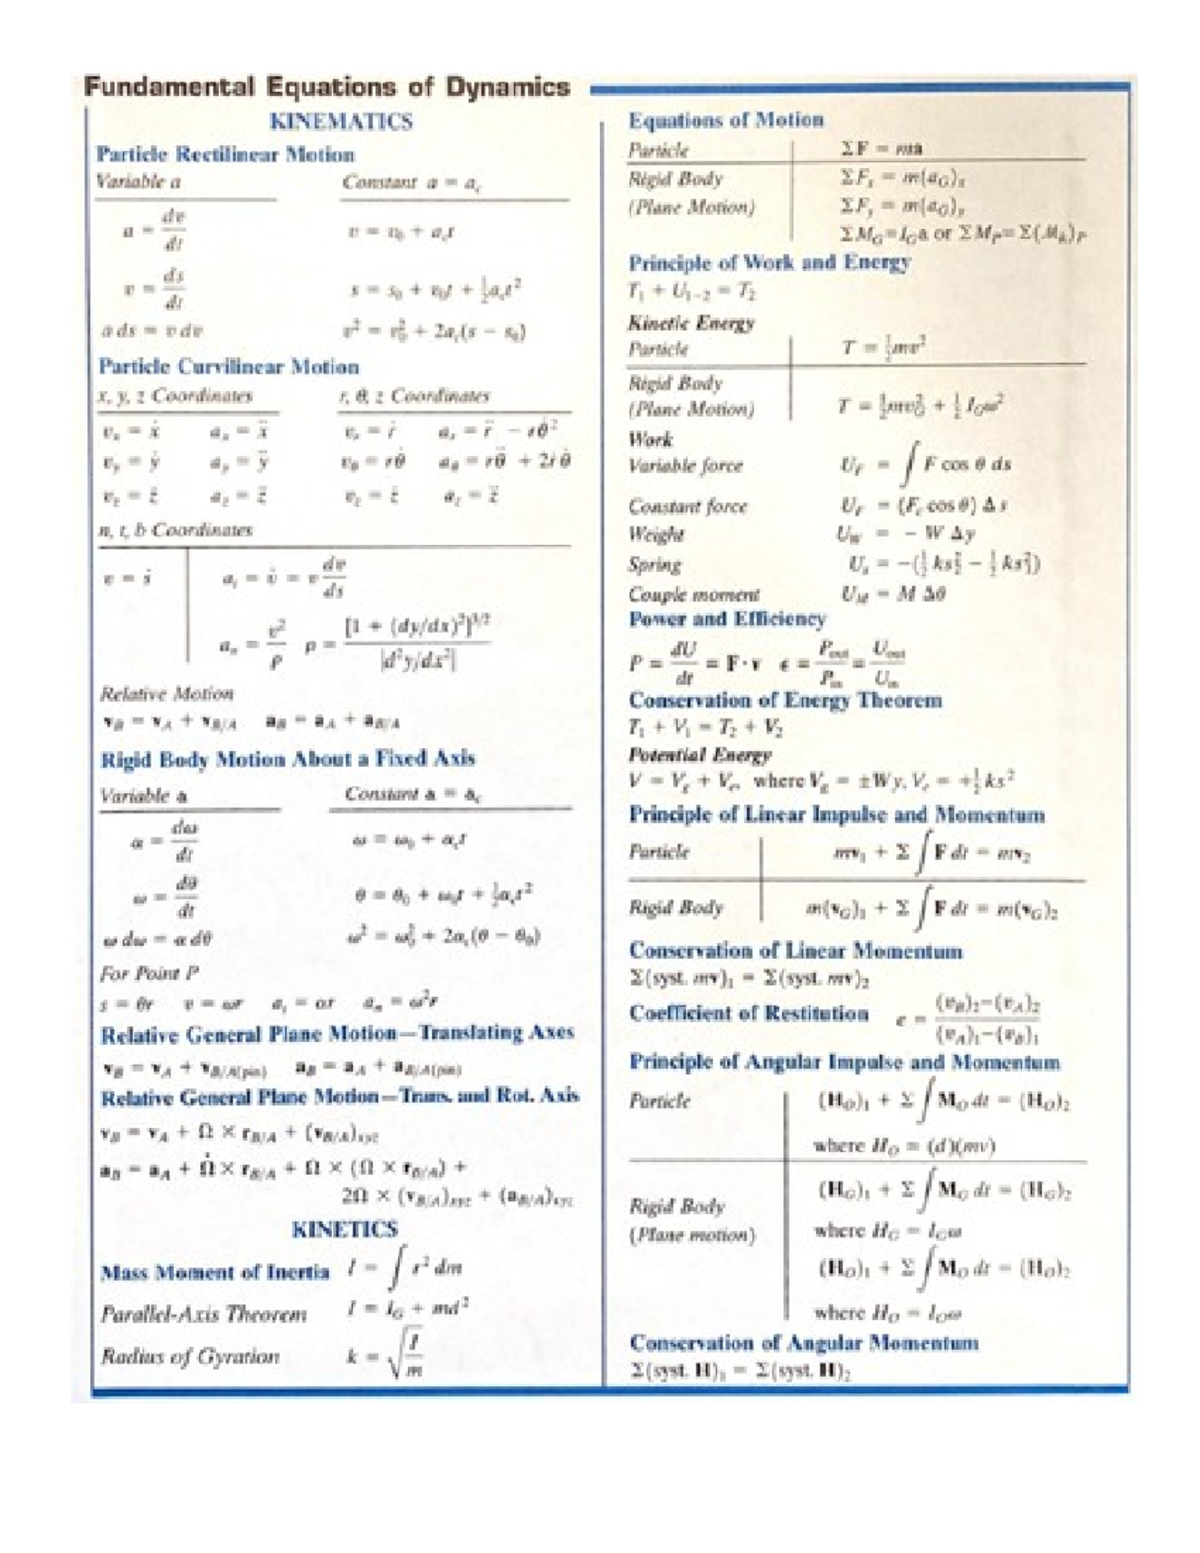 Fundamental Equations of Dynamics
KINEMATICS
Particle Rectilinear Motion
Variable a    Constant a = a_c
a = dv/dt    v = v_0 + a_c t
v = ds/dt    s = s_0 + v_0 t + ½ a_c t²
a ds = v dv    v² = v_0² + 2a_c(s − s_0)
Particle Curvilinear Motion
x, y, z Coordinates    r, θ, z Coordinates
v_x = ẋ    a_x = ẍ    v_r = ṙ    a_r = r̈ − rθ̇²
v_y = ẏ    a_y = ÿ    v_θ = rθ̇    a_θ = rθ̈ + 2ṙθ̇
v_z = ż    a_z = z̈    v_z = ż    a_z = z̈
n, t, b Coordinates
v = ṡ    a_t = v̇ = v dv/ds
a_n = v²/ρ    ρ = [1 + (dy/dx)²]^3/2 / |d²y/dx²|
Relative Motion
v_B = v_A + v_B/A    a_B = a_A + a_B/A
Rigid Body Motion About a Fixed Axis
Variable a    Constant a = a_c
α = dω/dt    ω = ω_0 + α_c t
ω = dθ/dt    θ = θ_0 + ω_0 t + ½ α_c t²
ω dω = α dθ    ω² = ω_0² + 2α_c(θ − θ_0)
For Point P
s = θr    v = ωr    a_t = αr    a_n = ω²r
Relative General Plane Motion—Translating Axes
v_B = v_A + v_B/A(pin)    a_B = a_A + a_B/A(pin)
Relative General Plane Motion—Trans. and Rot. Axis
v_B = v_A + Ω × r_B/A + (v_B/A)_xyz
a_B = a_A + Ω̇ × r_B/A + Ω × (Ω × r_B/A) +
2Ω × (v_B/A)_xyz + (a_B/A)_xyz
KINETICS
Mass Moment of Inertia    I = ∫ r² dm
Parallel-Axis Theorem    I = I_G + md²
Radius of Gyration    k = √(I/m)
Equations of Motion
Particle    ΣF = ma
Rigid Body    ΣF_x = m(a_G)_x
(Plane Motion)    ΣF_y = m(a_G)_y
ΣM_G = I_G a or ΣM_P = Σ(ℳ_k)_P
Principle of Work and Energy
T_1 + U_1−2 = T_2
Kinetic Energy
Particle    T = ½ mv²
Rigid Body
(Plane Motion)    T = ½ mv_G² + ½ I_G ω²
Work
Variable force    U_F = ∫ F cos θ ds
Constant force    U_F = (F_c cos θ) Δs
Weight    U_W = − W Δy
Spring    U_s = −(½ ks_2² − ½ ks_1²)
Couple moment    U_M = M Δθ
Power and Efficiency
P = dU/dt = F·v    ϵ = P_out/P_in = U_out/U_in
Conservation of Energy Theorem
T_1 + V_1 = T_2 + V_2
Potential Energy
V = V_g + V_e, where V_g = ±Wy, V_e = +½ ks²
Principle of Linear Impulse and Momentum
Particle    mv_1 + Σ ∫ F dt = mv_2
Rigid Body    m(v_G)_1 + Σ ∫ F dt = m(v_G)_2
Conservation of Linear Momentum
Σ(syst. mv)_1 = Σ(syst. mv)_2
Coefficient of Restitution    e = (v_B)_2−(v_A)_2 / (v_A)_1−(v_B)_1
Principle of Angular Impulse and Momentum
Particle    (H_O)_1 + Σ ∫ M_O dt = (H_O)_2
where H_O = (d)(mv)
(H_G)_1 + Σ ∫ M_G dt = (H_G)_2
Rigid Body
(Plane motion)    where H_G = I_G ω
(H_O)_1 + Σ ∫ M_O dt = (H_O)_2
where H_O = I_O ω
Conservation of Angular Momentum
Σ(syst. H)_1 = Σ(syst. H)_2